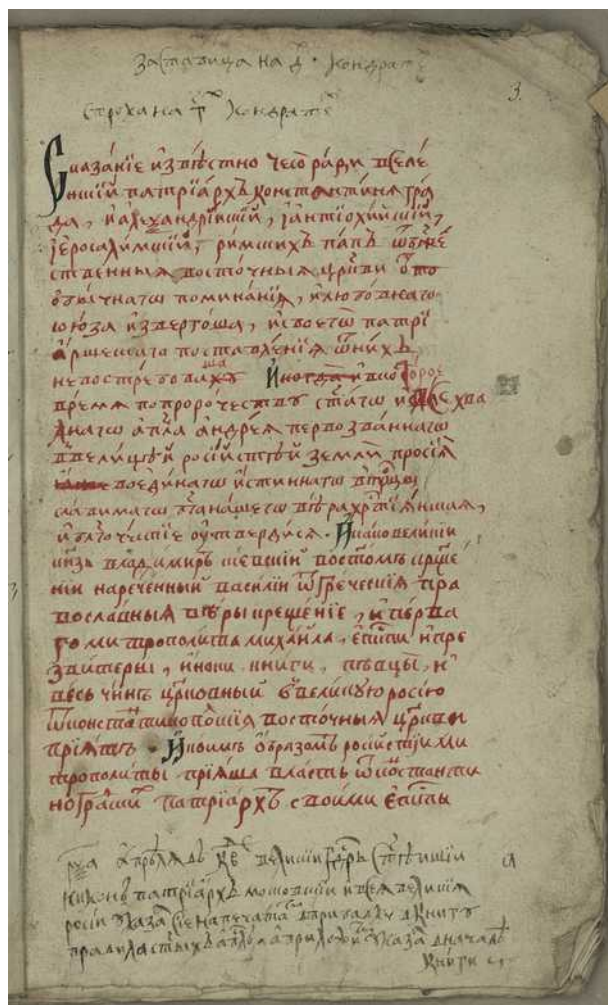 заставица на д҃ · кондратъ
3.
строка на т҃ кондратъ
Сказанїе извѣстно чесо ради вселе
нскїй патрїархъ константинягра
да, и алеѯандрїйскїй, їантїохїйскїй,
їеросалимскїй, римскихъ папъ ѿбж҃е
ственныѧ восточныѧ цр҃кви ѿ по
обычнагѡ поминанїѧ, и любовнагѡ
союза извергоша, и своегѡ патрї
аршескаго поставленїѧ ѿ нихъ
невостребоваша Иногда и во второе
время попророчествꙋ ст҃агѡ и всехва
лнагѡ ап҃ла андреѧ первозваннагѡ
ввелицѣй росїйстѣй земли просїѧ
воединагѡ истиннагѡ втр҃цы
славимагѡ бг҃а нашегѡ вѣра хр҃тїѧнскаѧ,
и бл҃гочестїе оутвердисѧ. И како великїи
кнз҃ь владимиръ киевскїй востомъ крще
нїи нареченный василїи ѿ греческїѧ пра
вославныѧ вѣры крещенїе, и перва
го митрополита михаила, еп҃кпы и пре
звитеры, иноки книги, пѣвцы, и
весь чинъ цр҃ковный ввеликую росїю
ѿ константинополїѧ восточныѧ цр҃кви
прїѧтъ. И коимъ образомъ росїйстїи ми
трополиты прїѧша власть ѿ константи
ноградски патрїархъ своими еп҃кпы
рѯа апрѣлѧ въ к҃е великїи гд҃рь ст҃ѣйшїи
никонъ патрїархъ московскїй и всеѧ великїѧ
росїи указал сїе напечатат в прибавку в книгꙋ
правила ст҃ыхъ ап҃лъ а приложит указал в начале
книги